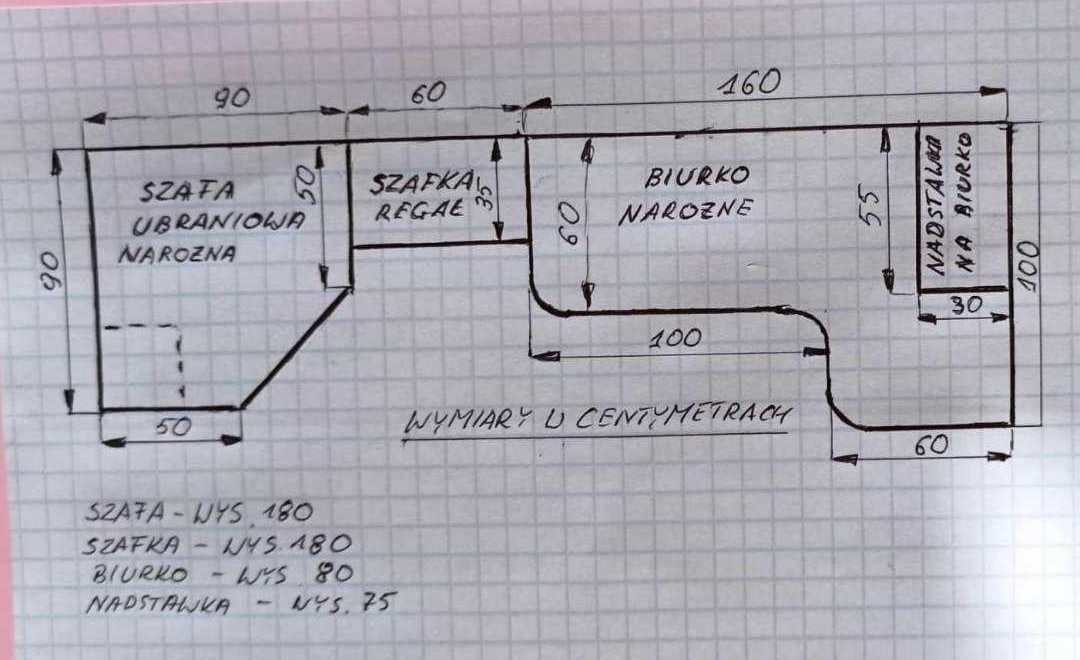 90
60
160
SZAFA
UBRANIOWA
NAROZNA
50
SZAFKA
REGAŁ
35
60
BIURKO
NAROZNE
55
NADSTAWKA
NA BIURKO
90
100
30
100
50
60
WYMIARY W CENTYMETRACH
SZAFA - WYS. 180
SZAFKA - WYS. 180
BIURKO - WYS 80
NADSTAWKA - WYS. 75